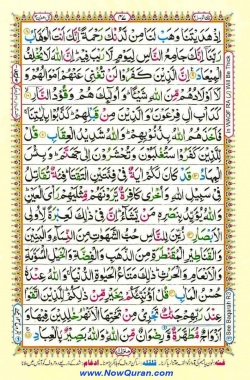 اِذْ هَدَيْتَنَا وَهَبْ لَنَا مِنْ لَّدُنْكَ رَحْمَةً اِنَّكَ اَنْتَ الْوَهَّابُ
رَبَّنَآ اِنَّكَ جَامِعُ النَّاسِ لِيَوْمٍ لَّا رَيْبَ فِيْهِ اِنَّ اللّٰهَ لَا يُخْلِفُ
الْمِيْعَادَ اِنَّ الَّذِيْنَ كَفَرُوْا لَنْ تُغْنِيَ عَنْهُمْ اَمْوَالُهُمْ وَ
لَآ اَوْلَادُهُمْ مِّنَ اللّٰهِ شَيْئًا وَاُولٰٓئِكَ هُمْ وَقُوْدُ النَّارِ
كَدَاْبِ اٰلِ فِرْعَوْنَ وَالَّذِيْنَ مِنْ قَبْلِهِمْ كَذَّبُوْا بِاٰيٰتِنَا
فَاَخَذَهُمُ اللّٰهُ بِذُنُوْبِهِمْ وَاللّٰهُ شَدِيْدُ الْعِقَابِ قُلْ
لِّلَّذِيْنَ كَفَرُوْا سَتُغْلَبُوْنَ وَتُحْشَرُوْنَ اِلٰى جَهَنَّمَ وَبِئْسَ
الْمِهَادُ قَدْ كَانَ لَكُمْ اٰيَةٌ فِيْ فِئَتَيْنِ الْتَقَتَا فِئَةٌ تُقَاتِلُ
فِيْ سَبِيْلِ اللّٰهِ وَاُخْرٰى كَافِرَةٌ يَّرَوْنَهُمْ مِّثْلَيْهِمْ رَاْيَ الْعَيْنِ
وَاللّٰهُ يُؤَيِّدُ بِنَصْرِهٖ مَنْ يَّشَآءُ اِنَّ فِيْ ذٰلِكَ لَعِبْرَةً لِّاُولِي
الْاَبْصَارِ زُيِّنَ لِلنَّاسِ حُبُّ الشَّهَوٰتِ مِنَ النِّسَآءِ وَالْبَنِيْنَ
وَالْقَنَاطِيْرِ الْمُقَنْطَرَةِ مِنَ الذَّهَبِ وَالْفِضَّةِ وَالْخَيْلِ الْمُسَوَّمَةِ
وَالْاَنْعَامِ وَالْحَرْثِ ذٰلِكَ مَتَاعُ الْحَيٰوةِ الدُّنْيَا وَاللّٰهُ عِنْدَهٗ
حُسْنُ الْمَاٰبِ قُلْ اَؤُنَبِّئُكُمْ بِخَيْرٍ مِّنْ ذٰلِكُمْ لِلَّذِيْنَ اتَّقَوْا
عِنْدَ رَبِّهِمْ جَنّٰتٌ تَجْرِيْ مِنْ تَحْتِهَا الْاَنْهٰرُ خٰلِدِيْنَ فِيْهَا وَ
اَزْوَاجٌ مُّطَهَّرَةٌ وَّرِضْوَانٌ مِّنَ اللّٰهِ وَاللّٰهُ بَصِيْرٌ بِالْعِبَادِ
www.NowQuran.com